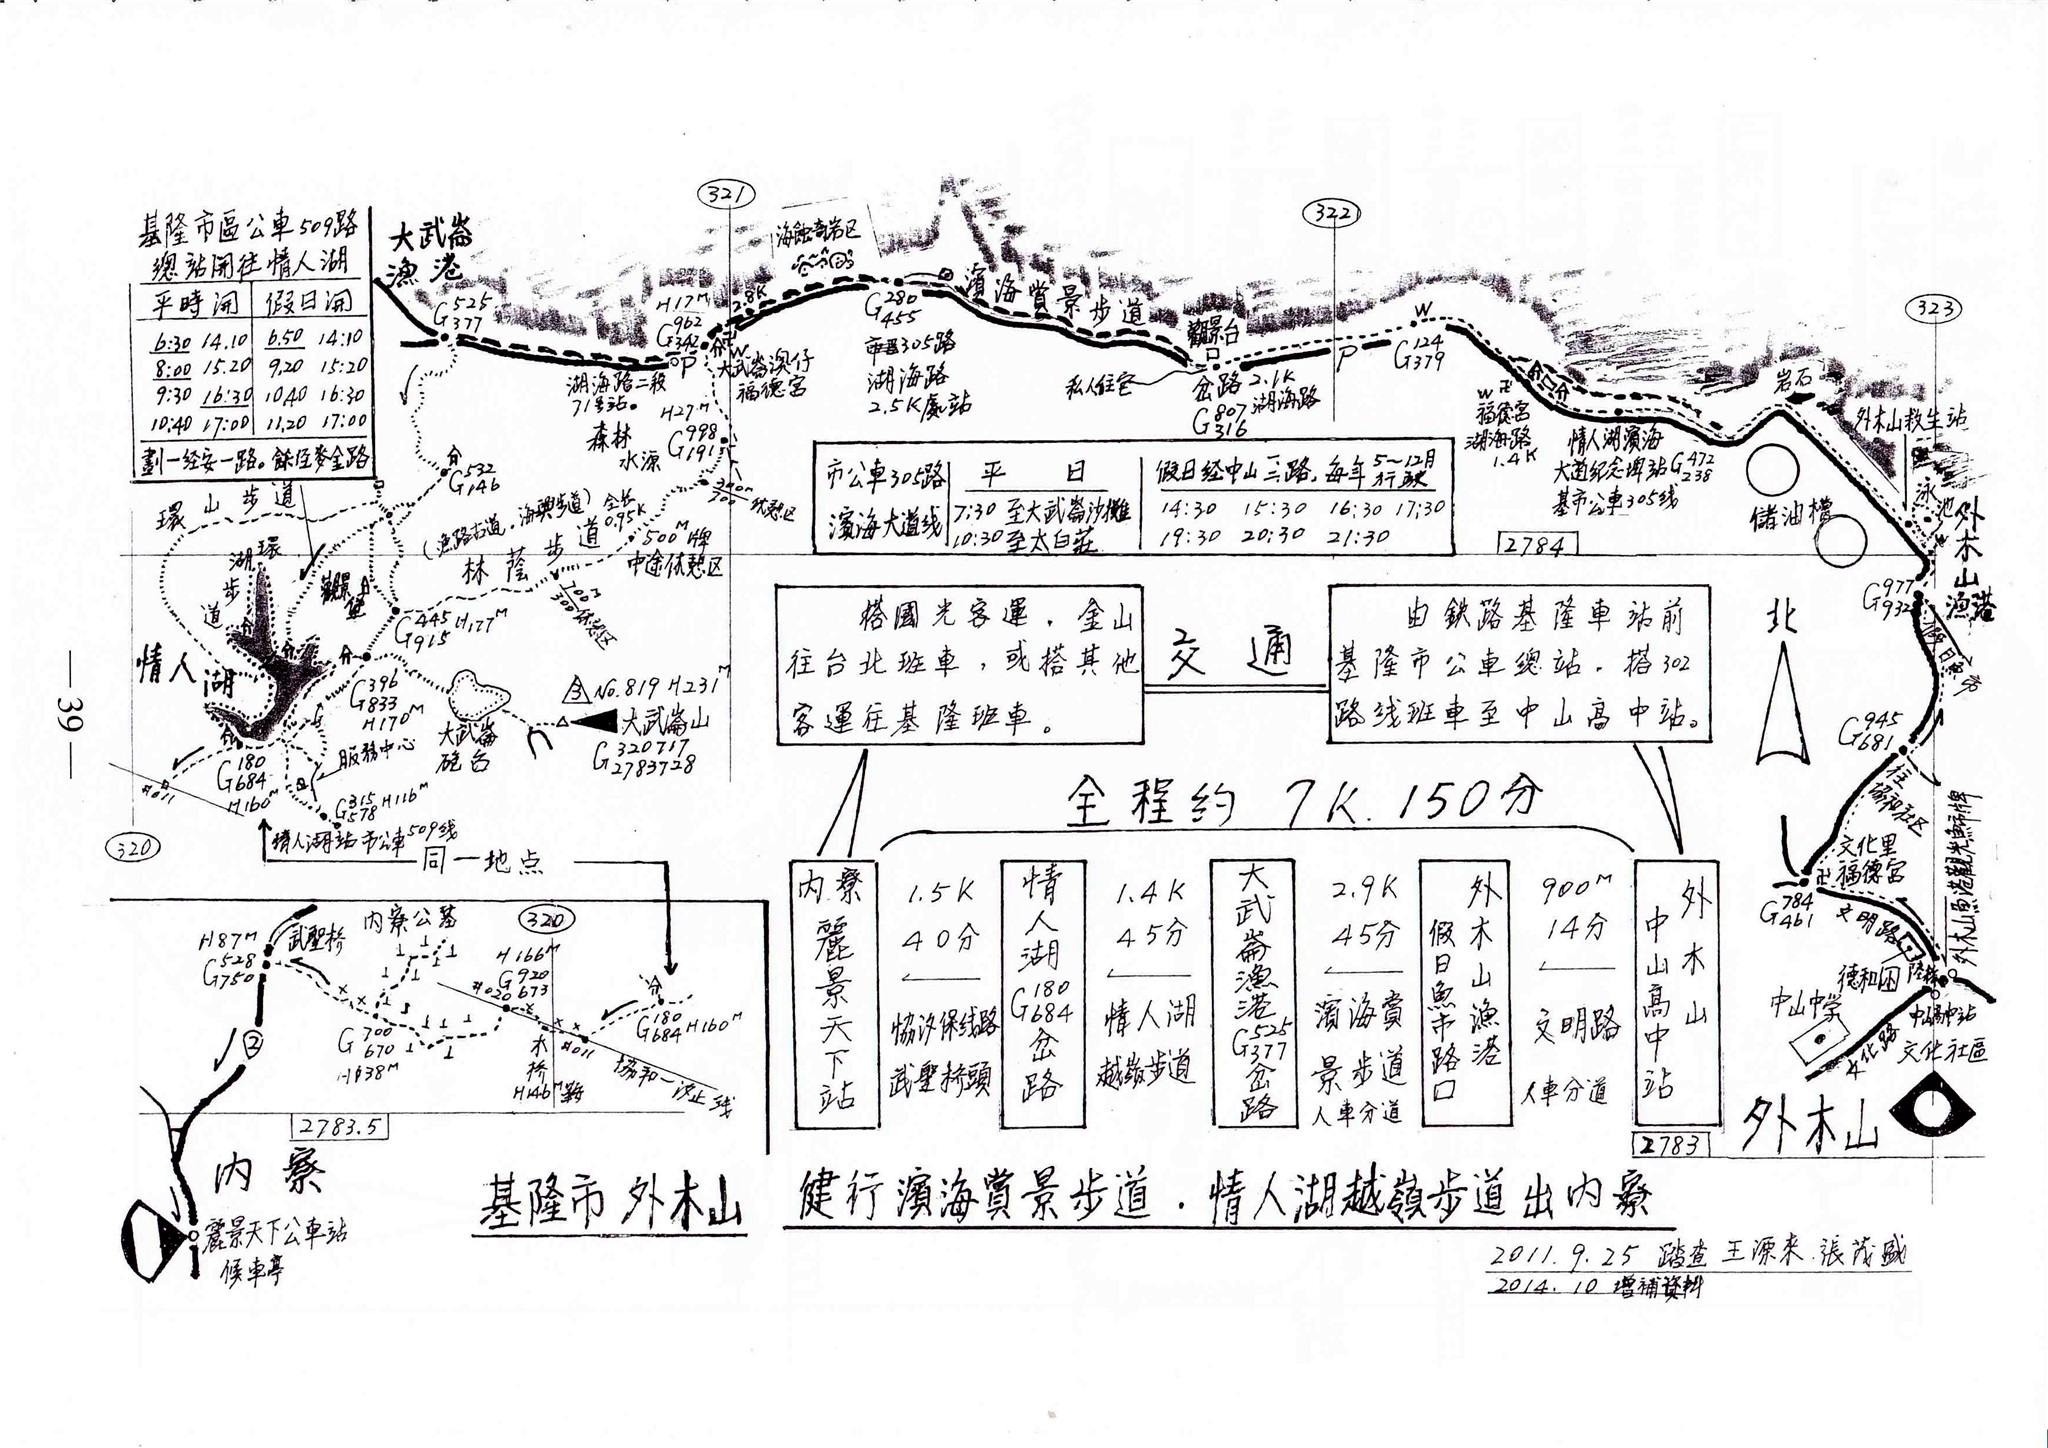 基隆市區公車509路
總站開往情人湖
平時開 假日開
6:30 14.10 6.50 14:10
8:00 15.20 9.20 15:20
9:30 16:30 10.40 16:30
10:40 17:00 11.20 17:00
劃一經安一路。餘經麥金路
大武崙
漁港
G525
377
321
海蝕奇岩区
322
323
H17M
G962
342
2.8K
P
W
大武崙澳仔
福德宮
湖海路二段
71号站。
森林
水源
H27M
G998
191
G280
455
市公車305路
湖海路
2.5K處站
濱海賞景步道
觀景台
私人住宅
岔路
2.1K
湖海路
G807
316
P
W
G124
379
W 卍
福德宮
湖海路
1.4K
情人湖濱海
大道紀念埤站G472
238
基市公車305线
岩石
外木山救生站
儲油槽
泳池
外木山漁港
G977
932
G945
681
往
協和社区
外木山漁港觀光魚市牌
文化里
福德宮
G784
461
文明路
德和困
陸橋
中山中学
中山高中站
文化路
文化社區
外木山
北
環山步道
環湖步道
G532
146
觀景
(漁路古道,海興步道)全長
0.95K
林蔭步道
500M牌
中途休憩区
300M
700
休憩区
700M
300
休憩区
G445
915
H177M
情人湖
G396
833
H170M
大武崙
砲台
No.819 H231M
大武崙山
G320717
2783728
服務中心
G180
684
H160M
G315
578
H116M
#011
情人湖站市公車509线
320
同一地点
市公車305路 平 日 假日經中山三路,每年5~12月行駛
濱海大道线 7:30至大武崙沙灘 14:30 15:30 16:30 17:30
10:30至太白莊 19:30 20:30 21:30
2784
搭國光客運,金山
往台北班車,或搭其他
客運往基隆班車。
交通
由鉄路基隆車站前
基隆市公車總站,搭302
路线班車至中山高中站。
全程約 7K.150分
內寮
麗景天下站
1.5K
40分
協汐保线路
武聖桥頭
情人湖G180
684岔路
1.4K
45分
情人湖
越嶺步道
大武崙漁港G525
377岔路
2.9K
45分
濱海賞
景步道
人車分道
外木山漁港
假日魚市路口
900M
14分
文明路
人車分道
外木山
中山高中站
2783
H87M
G528
750
武聖桥
內寮公墓
320
H166M
G920
673
#020
G700
670
H138M
木桥
H146M
#011
G180
684
H160M
協和一汐止线
2
2783.5
內寮
麗景天下公車站
候車亭
基隆市外木山 健行濱海賞景步道.情人湖越嶺步道出內寮
2011.9.25 踏查 王源来.張茂盛
2014.10 增補資料
—39—